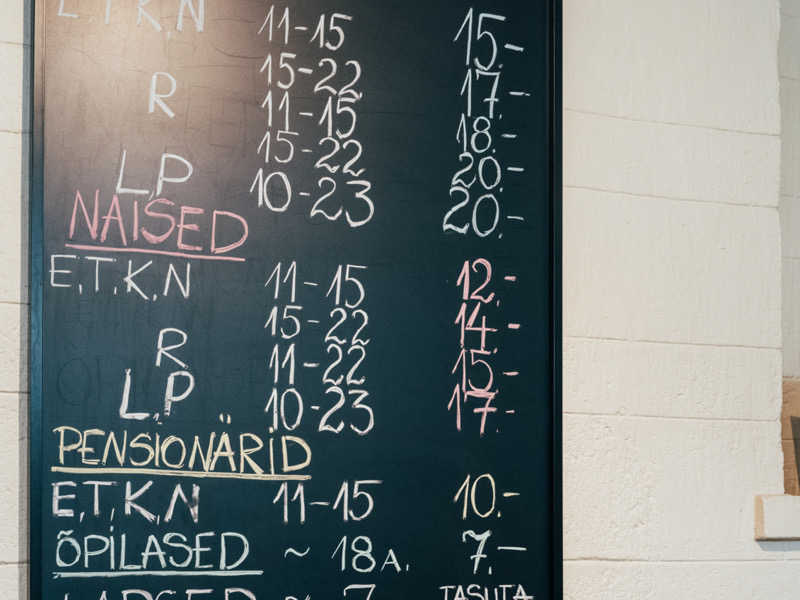 E,T,K,N 11-15 15.-
15-22 17.-
R 11-15 18.-
15-22 20.-
L,P 10-23 20.-
NAISED
E,T,K,N 11-15 12.-
15-22 14.-
R 11-22 15.-
L,P 10-23 17.-
PENSIONÄRID
E,T,K,N 11-15 10.-
ÕPILASED ~ 18A. 7.-
LAPSED ~ 7 TASUTA